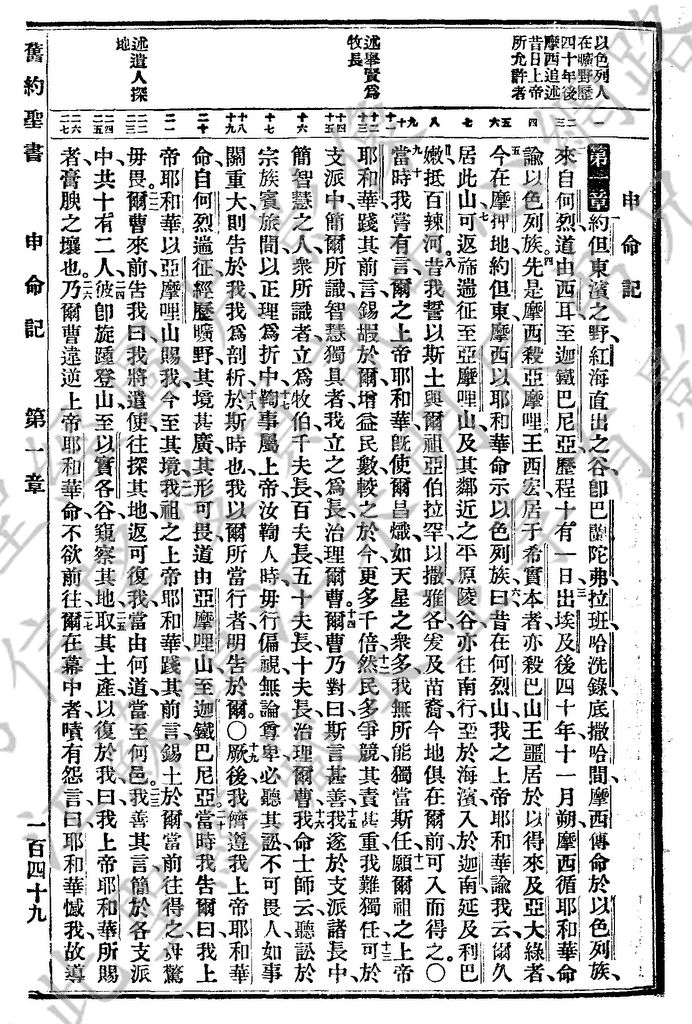 申命記
第一章約但東濱之野紅海直出之谷卽巴蘭陀弗拉班哈洗錄底撒哈間摩西傳命於以色列族
來自何烈道由西耳至迦鐵巴尼亞歷程十有一日出埃及後四十年十一月朔摩西循耶和華命
諭以色列族先是摩西殺亞摩哩王西宏居于希實本者亦殺巴山王噩居於以得來及亞大綠者
今在摩押地約但東摩西以耶和華命示以色列族曰昔在何烈山我之上帝耶和華諭我云爾久
居此山可返旆遄征至亞摩哩山及其鄰近之平原陵谷亦往南行至於海濱入於迦南延及利巴
嫩抵百辣河昔我誓以斯土與爾祖亞伯拉罕以撒雅各爰及苗裔今地俱在爾前可入而得之〇
當時我嘗有言爾之上帝耶和華旣使爾昌熾如天星之衆多我無所能獨當斯任願爾祖之上帝
耶和華踐其前言錫嘏於爾增益民數較之於今更多千倍然民多爭競其責甚重我難獨任可於
支派中簡爾所識智慧獨具者我立之爲長治理爾曹爾曹乃對曰斯言甚善我遂於支派諸長中
簡智慧之人衆所識者立爲牧伯千夫長百夫長五十夫長十夫長治理爾曹我命士師云聽訟於
宗族賓旅間以正理爲折中鞫事屬上帝汝鞫人時毋行偏視無論尊卑必聽其訟不可畏人如事
關重大則告於我我爲剖析於斯時也我以爾所當行者明告於爾〇厥後我儕遵我上帝耶和華
命自何烈遄征經歷曠野其境甚廣其形可畏道由亞摩哩山至迦鐵巴尼亞當時我告爾曰我上
帝耶和華以亞摩哩山賜我今至其境我祖之上帝耶和華踐其前言錫土於爾當前往得之毋驚
毋畏爾曹來前告我曰我將遣使往探其地返可復我當由何道當至何邑我善其言簡於各支派
中共十有二人彼卽旋踵登山至以實各谷窺察其地取其土產以復於我曰我上帝耶和華所賜
者膏腴之壤也乃爾曹違逆上帝耶和華命不欲前往爾在幕中者嘖有怨言曰耶和華憾我故導
以色列人
在曠野歷
四十年後
摩西追述
昔日上帝
所允許者
述舉賢爲
牧長
述遣人探
地
舊約聖書 申命記 第一章 一百四十九